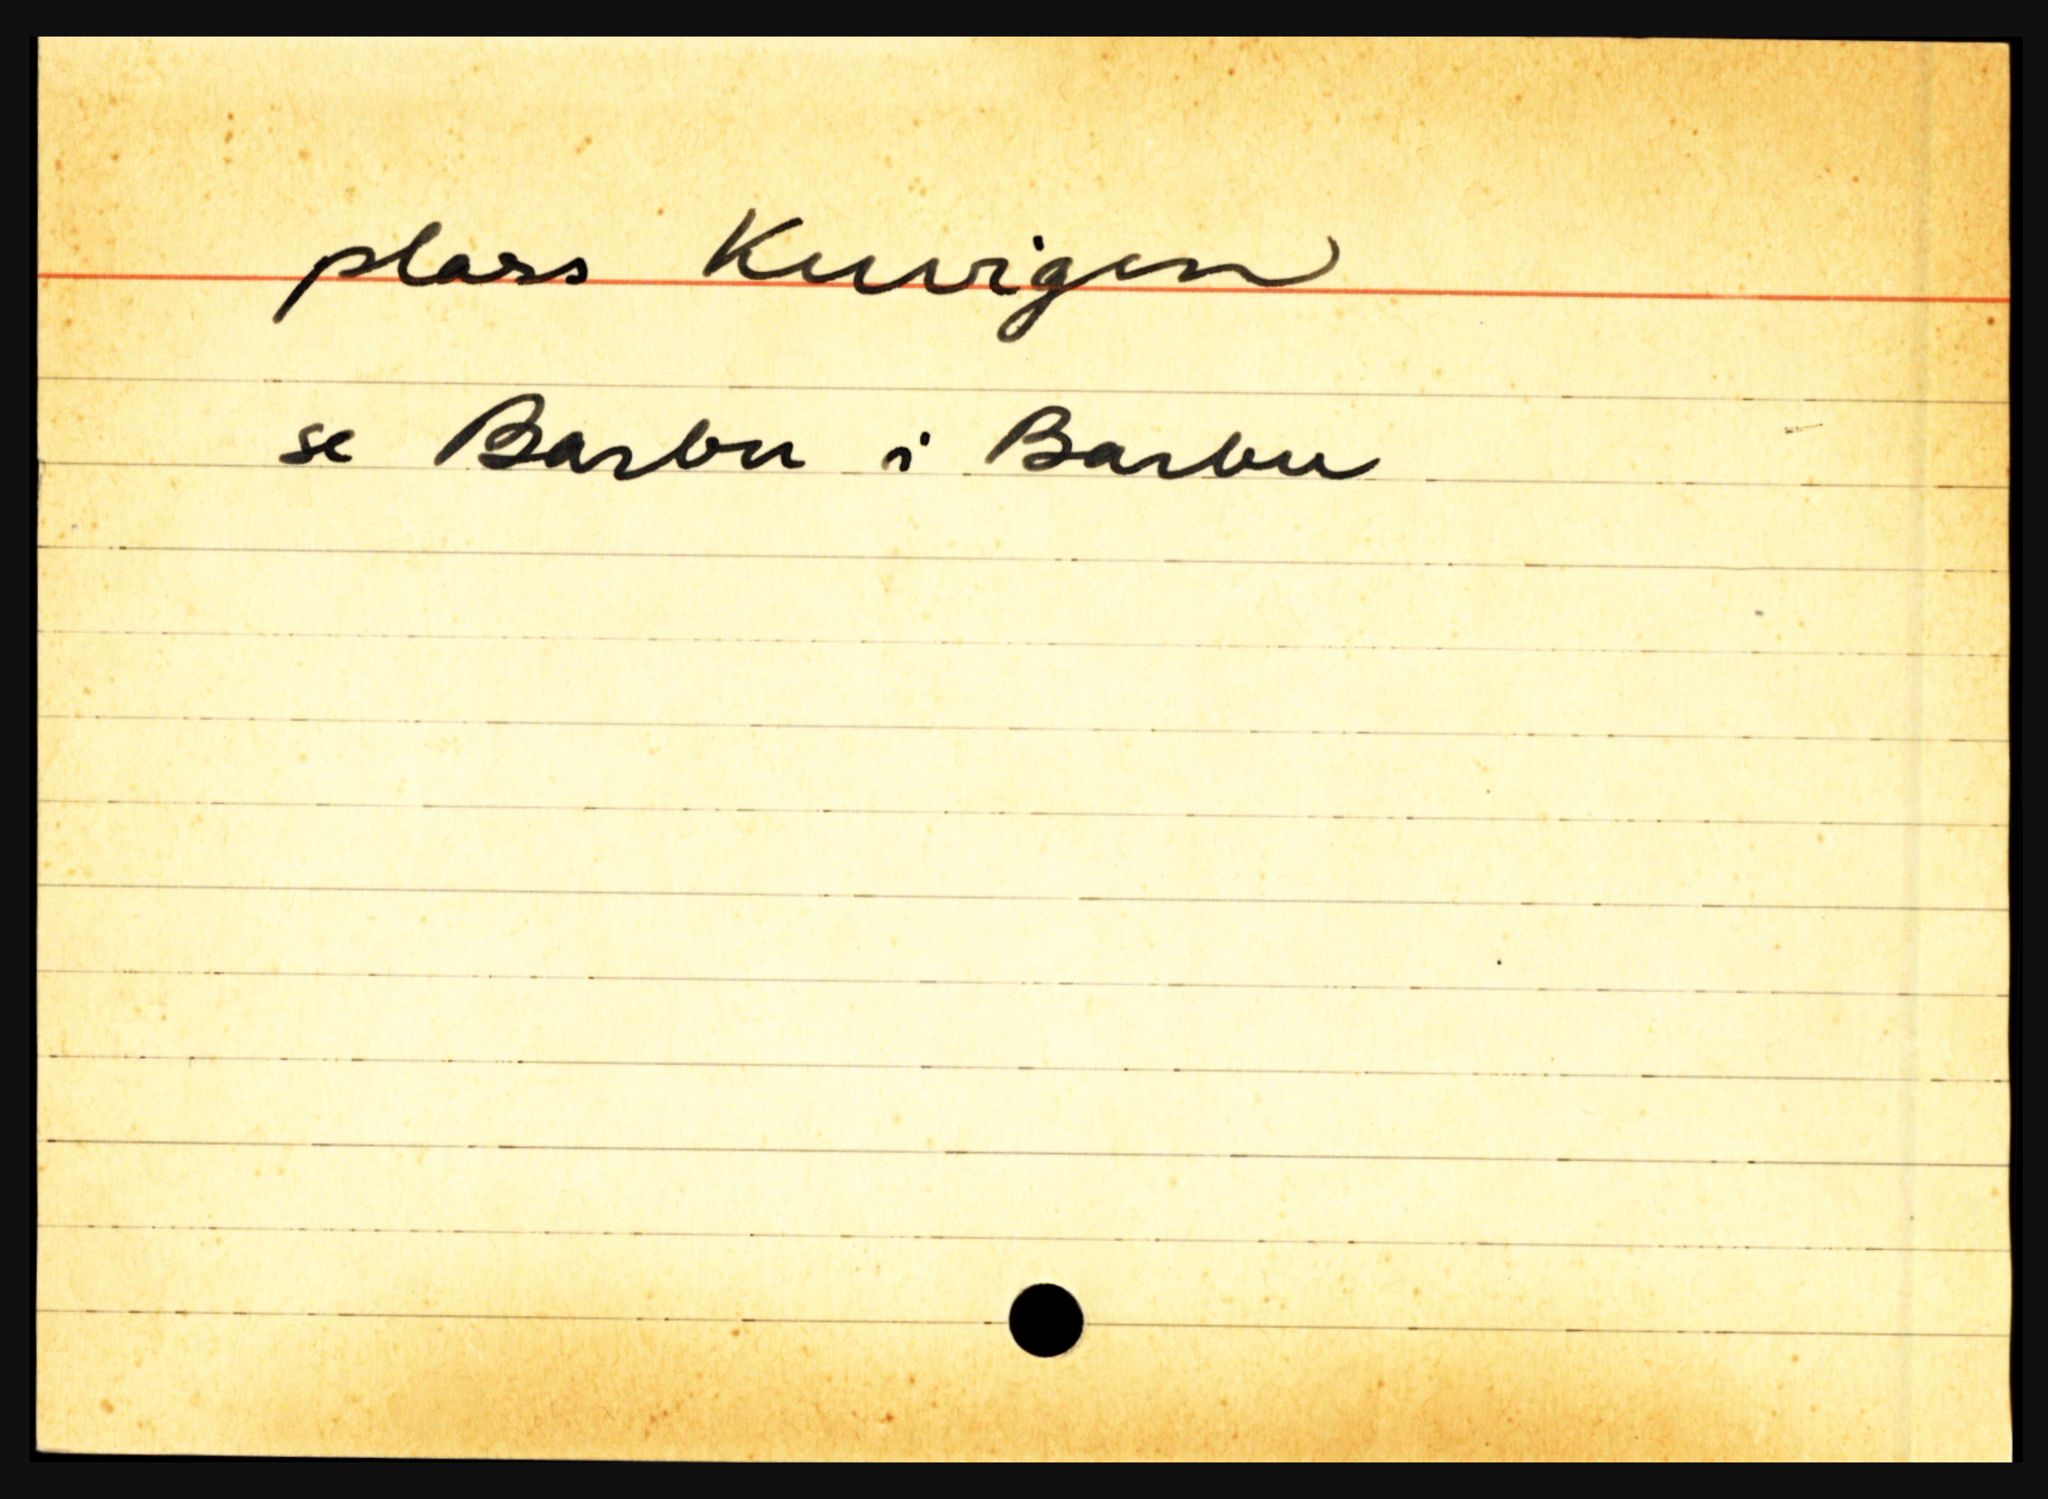 plass Kuvigen
se Barbu i Barbu